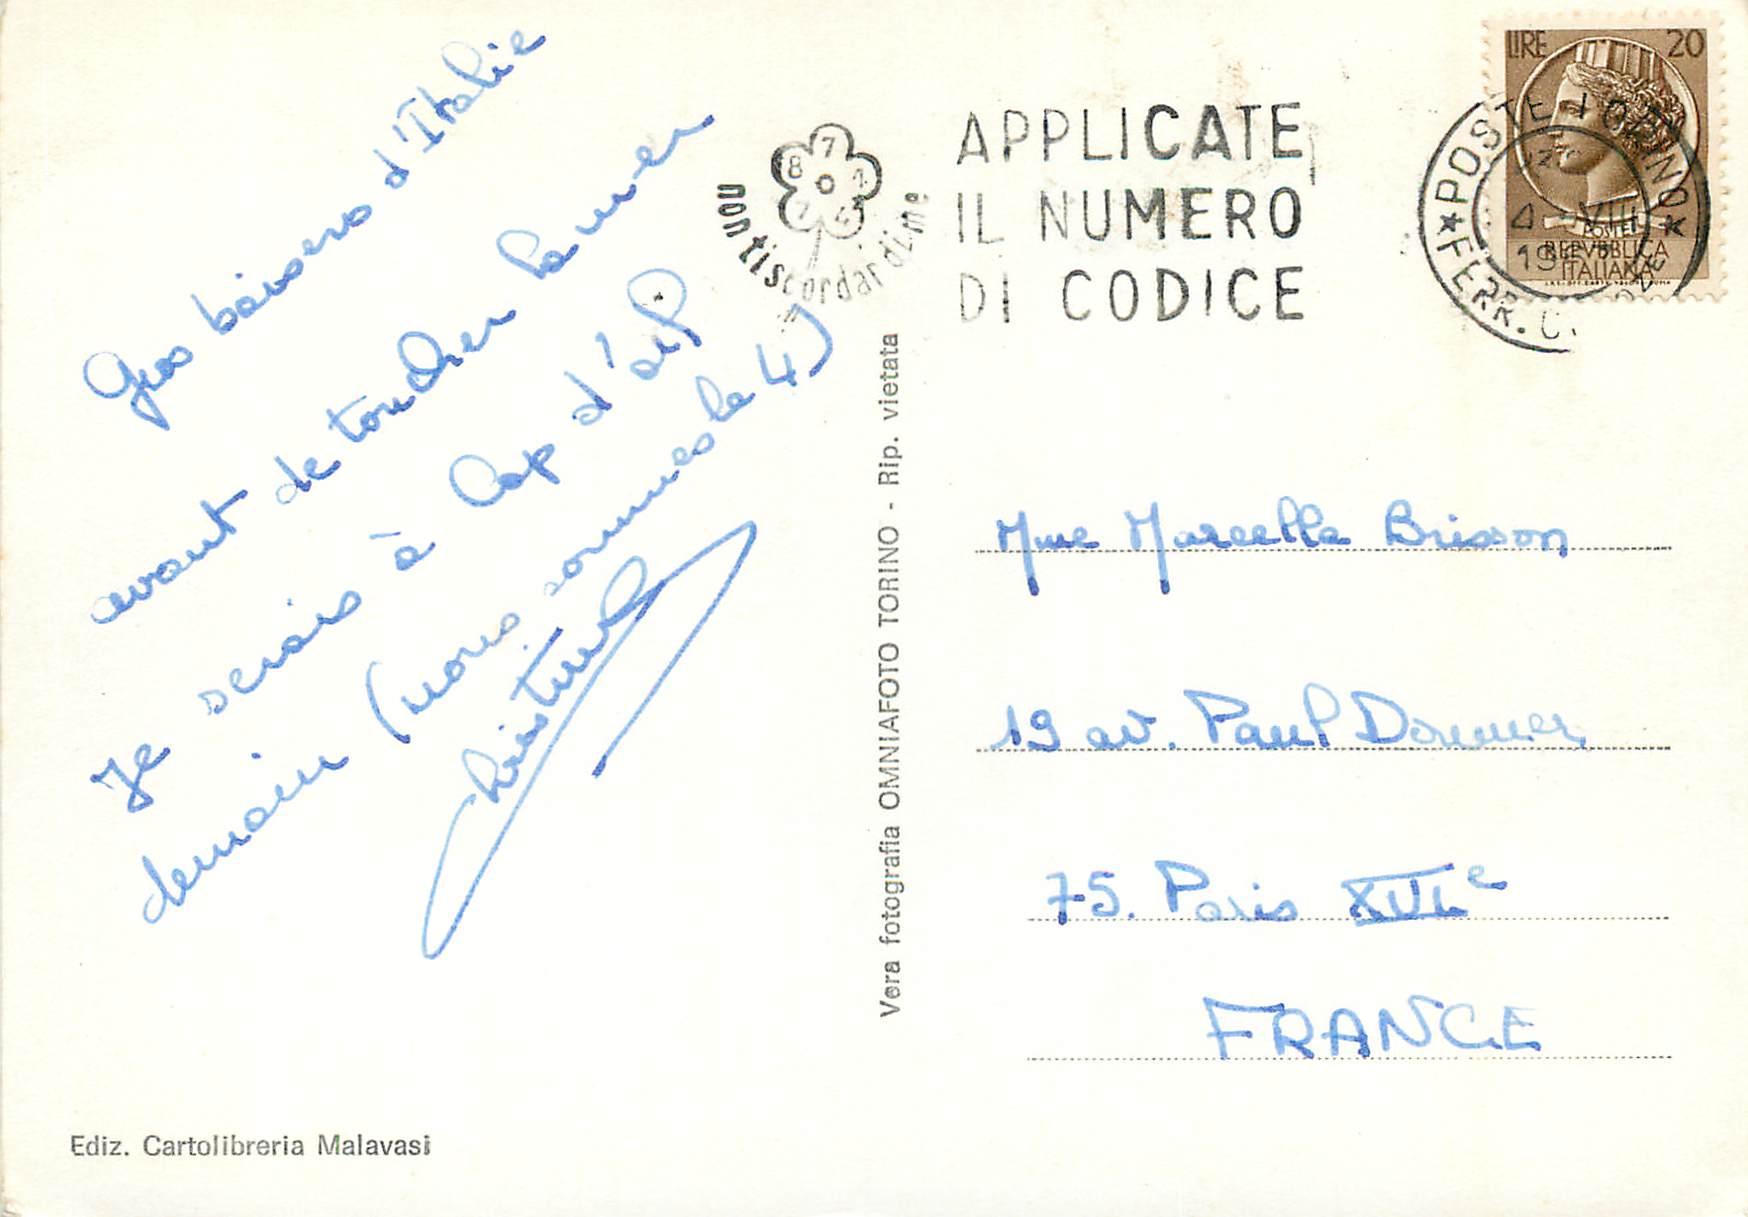 Gros baisers d'Italie
avant de toucher la mer
Je serais à Cap d'ail
demain (nous sommes le 4)
Christine
Ediz. Cartolibreria Malavasi
Vera fotografia OMNIAFOTO TORINO - Rip. vietata
nontiscordardime
8 7
0 1
APPLICATE
IL NUMERO
DI CODICE
LIRE 20
POSTE
REPVBBLICA
ITALIANA
POSTE TORINO
4 - VIII
19
FERR.
Mme Marcelle Brisson
19 av. Paul Doumer
75. Paris XVIe
FRANCE